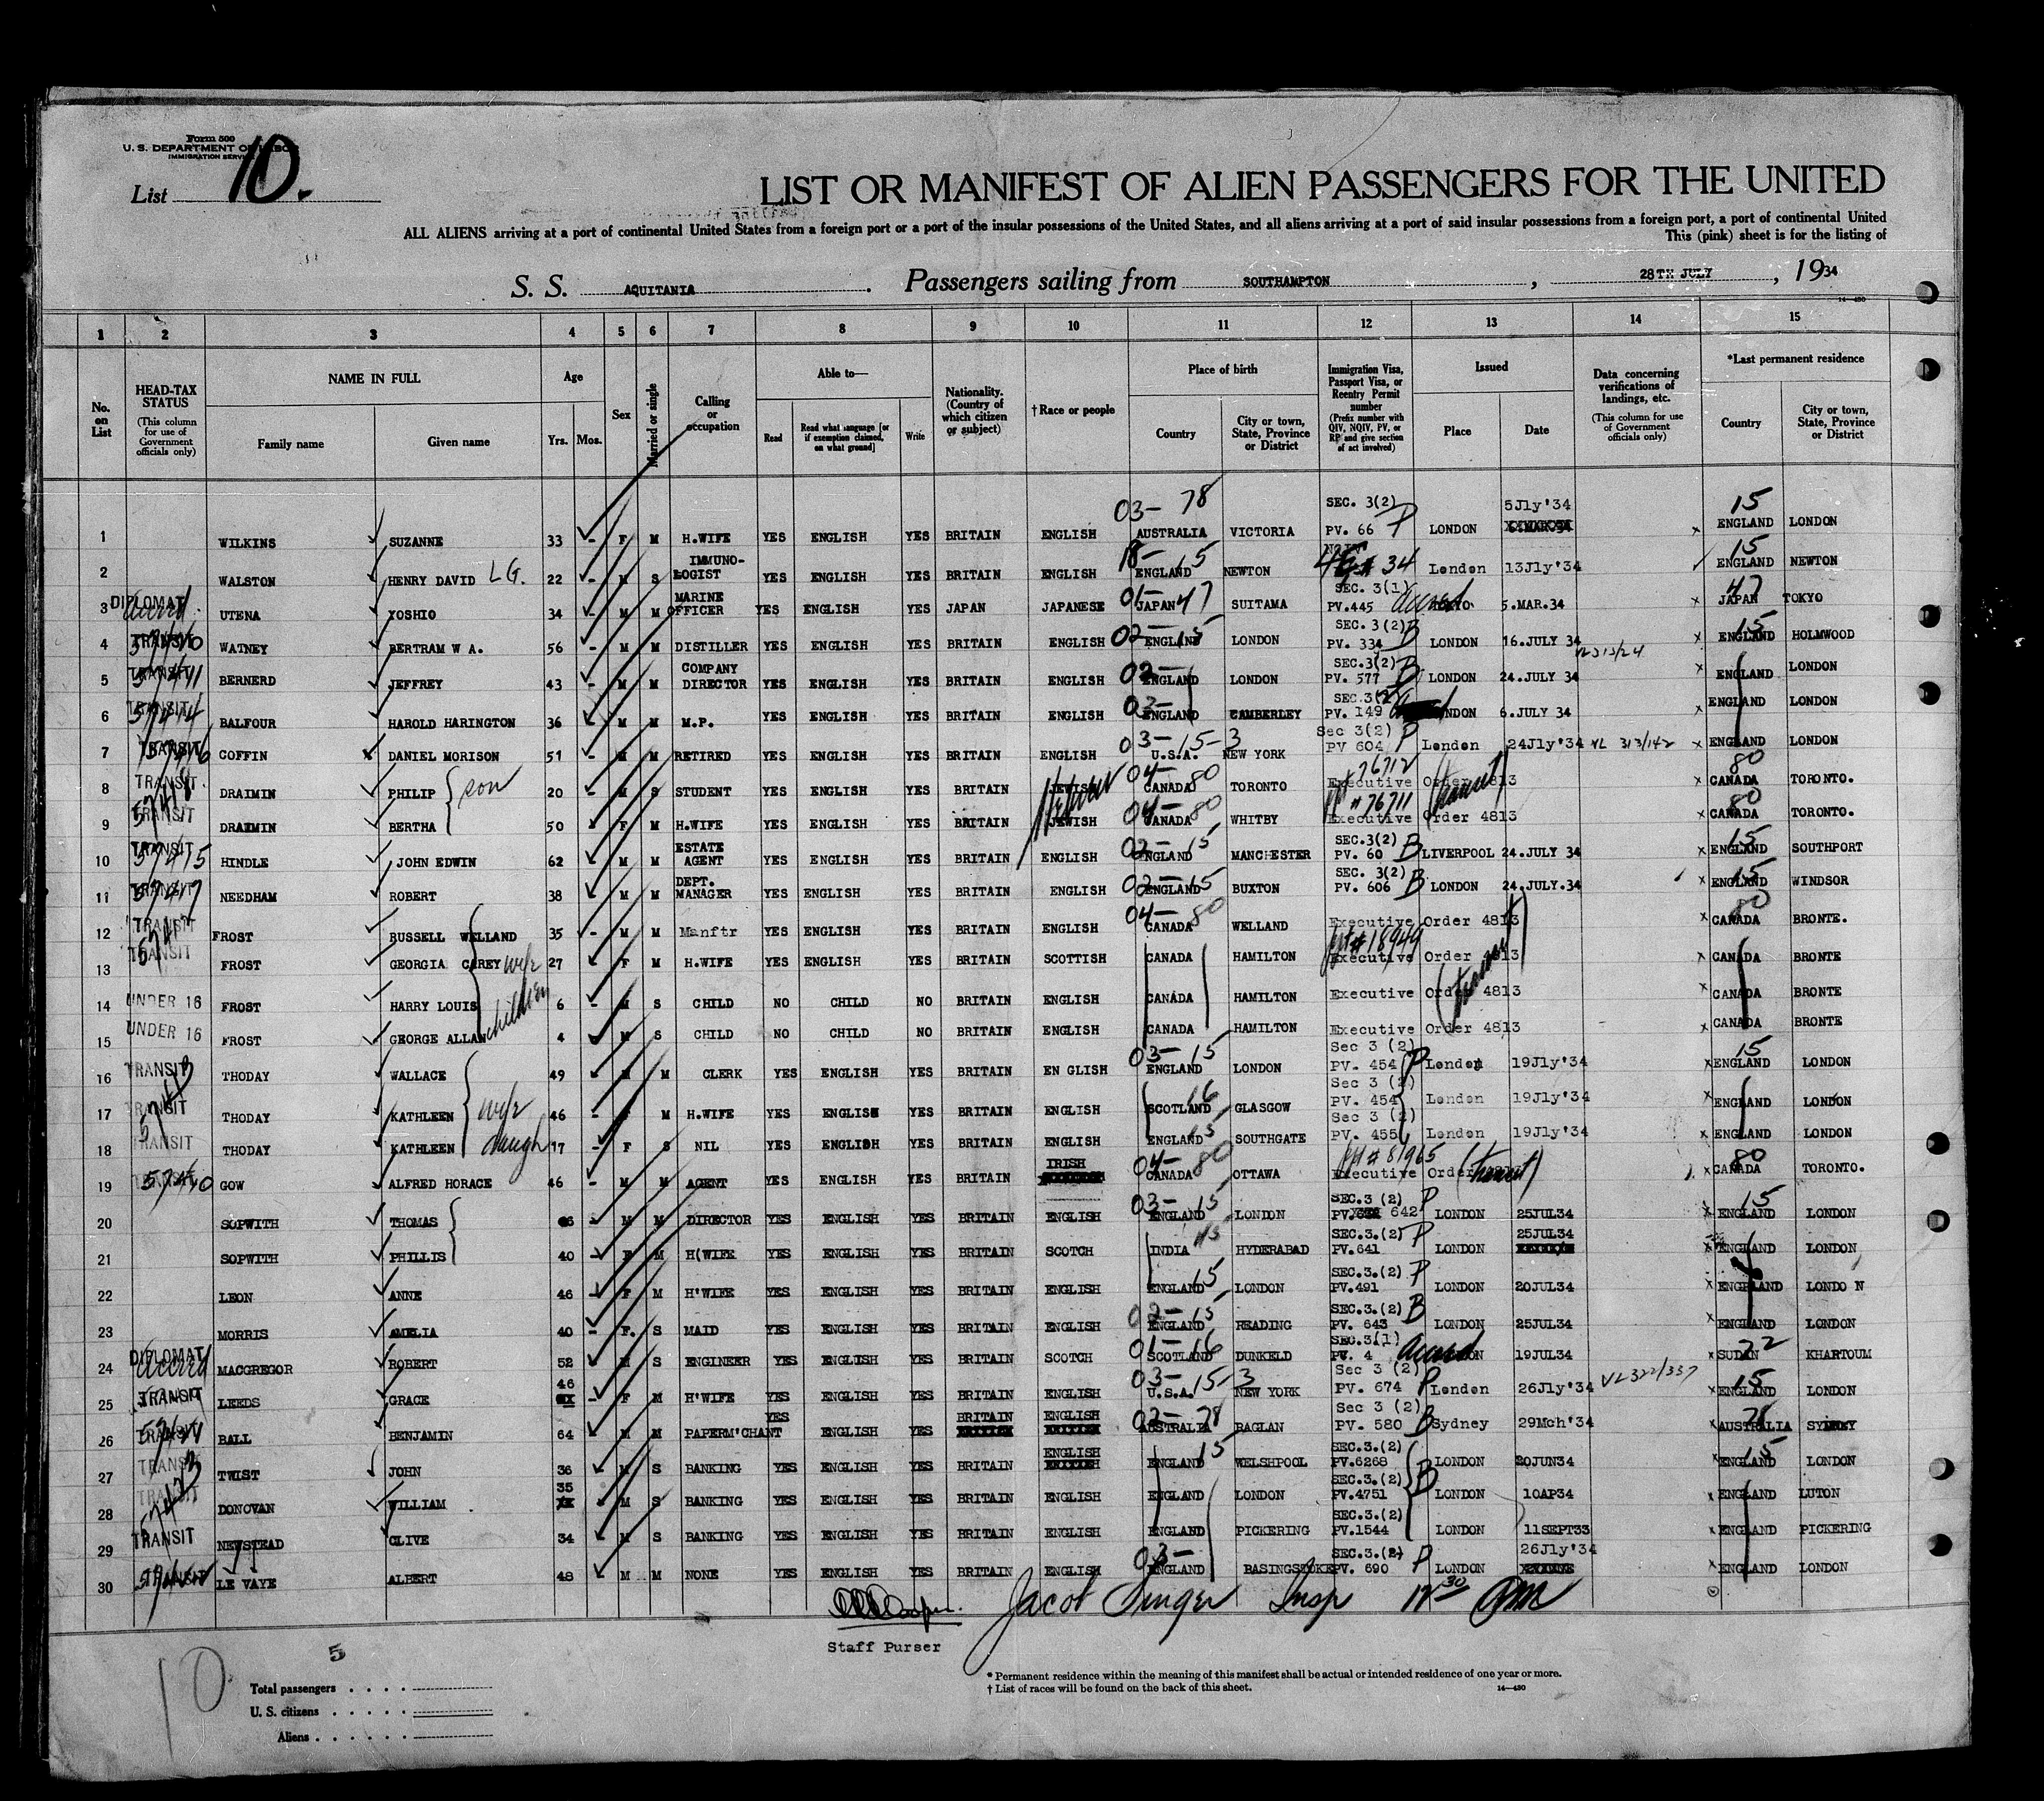 Form 500
U. S. DEPARTMENT OF LABOR
IMMIGRATION SERVICE
List 10.
LIST OR MANIFEST OF ALIEN PASSENGERS FOR THE UNITED
ALL ALIENS arriving at a port of continental United States from a foreign port or a port of the insular possessions of the United States, and all aliens arriving at a port of said insular possessions from a foreign port, a port of continental United
This (pink) sheet is for the listing of
S. S. AQUITANIA. Passengers sailing from SOUTHAMPTON, 28TH JULY, 1934
14—480
1 2 3 4 5 6 7 8 9 10 11 12 13 14 15
No. on List
HEAD-TAX STATUS (This column for use of Government officials only)
NAME IN FULL Family name Given name
Age Yrs. Mos.
Sex
Married or single
Calling or occupation
Able to— Read Read what language [or if exemption claimed, on what ground] Write
Nationality. (Country of which citizen or subject)
† Race or people
Place of birth Country City or town, State, Province or District
Immigration Visa, Passport Visa, or Reentry Permit number (Prefix number with QIV, NQIV, PV, or RP and give section of act involved)
Issued Place Date
Data concerning verifications of landings, etc. (This column for use of Government officials only)
*Last permanent residence Country City or town, State, Province or District
1 WILKINS SUZANNE 33 - F M H.WIFE YES ENGLISH YES BRITAIN ENGLISH 03- 78 AUSTRALIA VICTORIA SEC. 3(2) PV. 66 P LONDON 5Jly'34 x 15 ENGLAND LONDON
2 WALSTON HENRY DAVID L G. 22 - M S IMMUNO-LOGIST YES ENGLISH YES BRITAIN ENGLISH 18- 15 ENGLAND NEWTON 34 London 13Jly'34 15 ENGLAND NEWTON
3 DIPLOMAT UTENA YOSHIO 34 - M M MARINE OFFICER YES ENGLISH YES JAPAN JAPANESE 01- 47 JAPAN SUITAMA SEC. 3(1) PV.445 TOKYO 5.MAR.34 x 47 JAPAN TOKYO
4 TRANSIT WATNEY BERTRAM W A. 56 - M M DISTILLER YES ENGLISH YES BRITAIN ENGLISH 02- 15 ENGLAND LONDON SEC. 3(2) PV. 334 B LONDON 16.JULY 34 x 15 ENGLAND HOLMWOOD
5 TRANSIT 57411 BERNERD JEFFREY 43 - M M COMPANY DIRECTOR YES ENGLISH YES BRITAIN ENGLISH 02- ENGLAND LONDON SEC.3(2) PV. 577 B LONDON 24.JULY 34 x ENGLAND LONDON
6 TRANSIT 57414 BALFOUR HAROLD HARINGTON 36 M M M.P. YES ENGLISH YES BRITAIN ENGLISH 03- ENGLAND CAMBERLEY SEC.3(2) PV. 149 LONDON 6.JULY 34 x ENGLAND LONDON
7 TRANSIT 57416 COFFIN DANIEL MORISON 51 - M M RETIRED YES ENGLISH YES BRITAIN ENGLISH 03- 15-3 U.S.A. NEW YORK Sec 3(2) PV 604 P London 24Jly'34 VL 313/142 x ENGLAND LONDON
8 TRANSIT 57418 DRAIMIN PHILIP son 20 - M S STUDENT YES ENGLISH YES BRITAIN JEWISH Hebrew 04- 80 CANADA TORONTO 76712 Executive Order 4813 x 80 CANADA TORONTO.
9 TRANSIT DRAIMIN BERTHA 50 F M H.WIFE YES ENGLISH YES BRITAIN JEWISH 04- 80 CANADA WHITBY # 76711 Executive Order 4813 (transit) x 80 CANADA TORONTO.
10 TRANSIT 57415 HINDLE JOHN EDWIN 62 M M ESTATE AGENT YES ENGLISH YES BRITAIN ENGLISH 02- 15 ENGLAND MANCHESTER SEC.3(2) PV. 60 B LIVERPOOL 24.JULY 34 x 15 ENGLAND SOUTHPORT
11 TRANSIT 57417 NEEDHAM ROBERT 38 M M DEPT. MANAGER YES ENGLISH YES BRITAIN ENGLISH 02- 15 ENGLAND BUXTON SEC. 3(2) PV. 606 B LONDON 24.JULY.34 x 15 ENGLAND WINDSOR
12 TRANSIT FROST RUSSELL WELLAND 35 - M M Manftr YES ENGLISH YES BRITAIN ENGLISH 04- 80 CANADA WELLAND Executive Order 4813 x 80 CANADA BRONTE.
13 TRANSIT FROST GEORGIA CAREY wife 27 F M H.WIFE YES ENGLISH YES BRITAIN SCOTTISH CANADA HAMILTON # 18949 Executive Order 4813 x CANADA BRONTE
14 UNDER 16 FROST HARRY LOUIS 6 - M S CHILD NO CHILD NO BRITAIN ENGLISH CANADA HAMILTON Executive Order 4813 (transit) x CANADA BRONTE
15 UNDER 16 FROST GEORGE ALLAN children 4 M S CHILD NO CHILD NO BRITAIN ENGLISH CANADA HAMILTON Executive Order 4813 x CANADA BRONTE
16 TRANSIT THODAY WALLACE 49 M M CLERK YES ENGLISH YES BRITAIN EN GLISH 03- 15 ENGLAND LONDON Sec 3 (2) PV. 454 P London 19Jly'34 x 15 ENGLAND LONDON
17 TRANSIT THODAY KATHLEEN wife 46 - F M H.WIFE YES ENGLISH YES BRITAIN ENGLISH 16 SCOTLAND GLASGOW Sec 3 (2) PV. 454 London 19Jly'34 x ENGLAND LONDON
18 TRANSIT THODAY KATHLEEN daugh 17 - F S NIL YES ENGLISH YES BRITAIN ENGLISH 15 ENGLAND SOUTHGATE Sec 3 (2) PV. 455 London 19Jly'34 x ENGLAND LONDON
19 TRANSIT GOW ALFRED HORACE 46 - M M AGENT YES ENGLISH YES BRITAIN IRISH 04- 80 CANADA OTTAWA # 81965 Executive Order (transit) x 80 CANADA TORONTO.
20 SOPWITH THOMAS M M DIRECTOR YES ENGLISH YES BRITAIN ENGLISH 03- 15 ENGLAND LONDON SEC.3 (2) P PV. 642 LONDON 25JUL34 x 15 ENGLAND LONDON
21 SOPWITH PHILLIS 40 - F M H(WIFE YES ENGLISH YES BRITAIN SCOTCH INDIA HYDERABAD SEC.3.(2) P PV.641 LONDON 25JUL34 x ENGLAND LONDON
22 LEON ANNE 46 - F M H'WIFE YES ENGLISH YES BRITAIN ENGLISH 15 ENGLAND LONDON SEC.3.(2) P PV.491 LONDON 20JUL34 x ENGLAND LONDO N
23 MORRIS AMELIA 40 - F. S MAID YES ENGLISH YES BRITAIN ENGLISH 02- 15 ENGLAND READING SEC.3.(2) B PV. 643 LONDON 25JUL34 x ENGLAND LONDON
24 DIPLOMAT MACGREGOR ROBERT 52 M S ENGINEER YES ENGLISH YES BRITAIN SCOTCH 01- 16 SCOTLAND DUNKELD SEC.3(1) PV. 4 LONDON 19JUL34 x 22 SUDAN KHARTOUM
25 TRANSIT LEEDS GRACE 46 - F M H'WIFE YES ENGLISH YES BRITAIN ENGLISH 03- 15-3 U.S.A. NEW YORK Sec 3 (2) PV. 674 P London 26Jly'34 VL322/337 x 15 ENGLAND LONDON
26 TRANSIT BALL BENJAMIN 64 M M PAPERM'CHANT YES ENGLISH YES BRITAIN ENGLISH 02- 78 AUSTRALIA RAGLAN Sec 3 (2) PV. 580 B Sydney 29Mch'34 x 78 AUSTRALIA SYDNEY
27 TRANSIT TWIST JOHN 36 M S BANKING YES ENGLISH YES BRITAIN ENGLISH 15 ENGLAND WELSHPOOL SEC.3.(2) PV.6268 B LONDON 20JUN34 x 15 ENGLAND LONDON
28 TRANSIT DONOVAN WILLIAM 35 M S BANKING YES ENGLISH YES BRITAIN ENGLISH ENGLAND LONDON SEC.3.(2) PV.4751 LONDON 10AP34 x ENGLAND LUTON
29 TRANSIT NEWSTEAD CLIVE 34 M S BANKING YES ENGLISH YES BRITAIN ENGLISH ENGLAND PICKERING SEC.3.(2) PV.1544 LONDON 11SEPT33 x ENGLAND PICKERING
30 TRANSIT LE VAYE ALBERT 48 M M NONE YES ENGLISH YES BRITAIN ENGLISH 03- ENGLAND BASINGSTOKE SEC.3.(2) PV. 690 P LONDON 26Jly'34 x ENGLAND LONDON
Jacob Singer Insp 12 30 Pm
Staff Purser
5
10
Total passengers
U. S. citizens
Aliens
* Permanent residence within the meaning of this manifest shall be actual or intended residence of one year or more.
† List of races will be found on the back of this sheet.
14—480